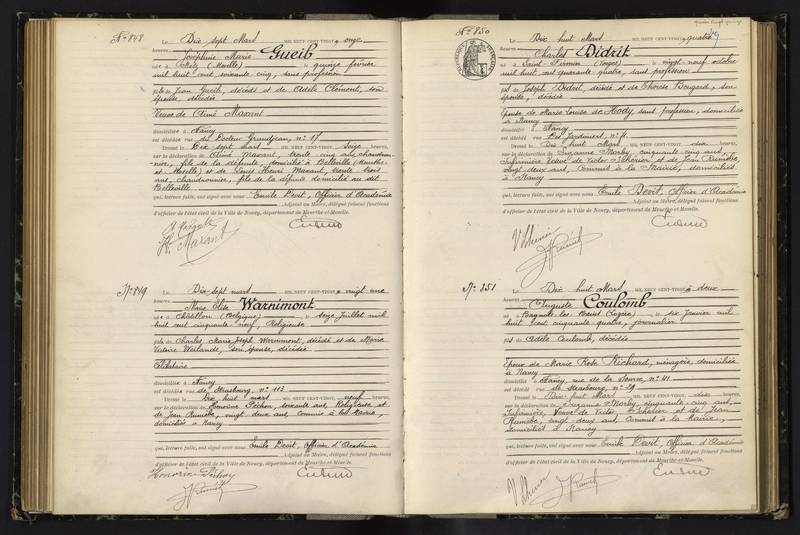 N° 848
Le Dix sept Mars MIL NEUF CENT-VINGT, à onze
heures
Joséphine Marie Gueib
née à Metz (Moselle) le quinze février
mil huit cent soixante cinq, sans profession
fille de Jean Gueib, décédé et de Adèle Clément, son
épouse, décédée
Veuve de Aimé Maxant
domiciliée à Nancy
est décédée rue du Docteur Grandjean, n° 17
Dressé le Dix sept mars seize heures,
sur la déclaration de Aimé Maxant, trente cinq ans, chaudron-
-nier, fils de la défunte, domicilié à Belleville (Meurthe-
et Moselle) et de Louis Henri Maxant, trente trois
ans, chaudronnier, fils de la défunte domicilié au dit
Belleville
qui, lecture faite, ont signé avec nous Emile Devit, Officier d'Académie
Adjoint au Maire, délégué faisant fonctions
d'officier de l'état civil de la Ville de Nancy, département de Meurthe-et-Moselle.
H. Maxant
N° 849
Le Dix-sept mars MIL NEUF CENT-VINGT, à vingt une
heures
Marie Elise Warnimont
née à Châtillon (Belgique) le seize Juillet mil
huit cent cinquante neuf, Religieuse
fille de Charles Marie Joseph Warnimont, décédé et de Marie
Victoire Weilande, son épouse, décédée
Célibataire
domiciliée à Nancy
est décédée rue de Strasbourg n° 113
Dressé le Dix huit mars neuf heures,
sur la déclaration de Honorine Pichon, soixante ans, Religieuse et
de Jean Rumèbe, vingt deux ans, Commis à la Mairie,
domiciliés à Nancy
qui, lecture faite, ont signé avec nous Emile Devit, Officier d'Académie
Adjoint au Maire, délégué faisant fonctions
d'officier de l'état civil de la Ville de Nancy, département de Meurthe-et-Moselle.
Honorine Pichon
N° 850
Le Dix huit Mars MIL NEUF CENT-VINGT, à quatre
heures
Charles Didrit
né à Saint Firmin (Vosges) le vingt neuf octobre
mil huit cent quarante quatre, sans profession
fils de Joseph Didrit, décédé et de Thérèse Bougard, son
épouse, décédée
Epoux de Marie Louise de Hody, sans profession, domiciliée
à Nancy
domicilié à Nancy
est décédé rue
Dressé le Dix huit Mars dix heures,
sur la déclaration de Suzanne Morby, cinquante cinq ans,
Infirmière, Veuve de Victor Lhérier et de Jean Rumèbe,
vingt deux ans, Commis à la Mairie, domiciliés
à Nancy
qui, lecture faite, ont signé avec nous Emile Devit, Officier d'Académie
Adjoint au Maire, délégué faisant fonctions
d'officier de l'état civil de la Ville de Nancy, département de Meurthe-et-Moselle.
N° 851
Le Dix huit Mars MIL NEUF CENT-VINGT, à deux
heures
Auguste Coulomb
né à Bagnols-les-Bains (Lozère) le six Janvier mil
huit cent cinquante quatre, journalier
fils de Adèle Coulomb, décédée
Epoux de Marie Rose Richard, ménagère, domiciliée
à Nancy
domicilié à Nancy, rue de la Source, n° 41
est décédé rue de Strasbourg, n° 29
Dressé le Dix huit Mars dix heures,
sur la déclaration de Suzanne Morby, cinquante cinq ans,
Infirmière, Veuve de Victor Lhérier et de Jean
Rumèbe, vingt deux ans, Commis à la Mairie,
domiciliés à Nancy
qui, lecture faite, ont signé avec nous Emile Devit, Officier d'Académie
Adjoint au Maire, délégué faisant fonctions
d'officier de l'état civil de la Ville de Nancy, département de Meurthe-et-Moselle.